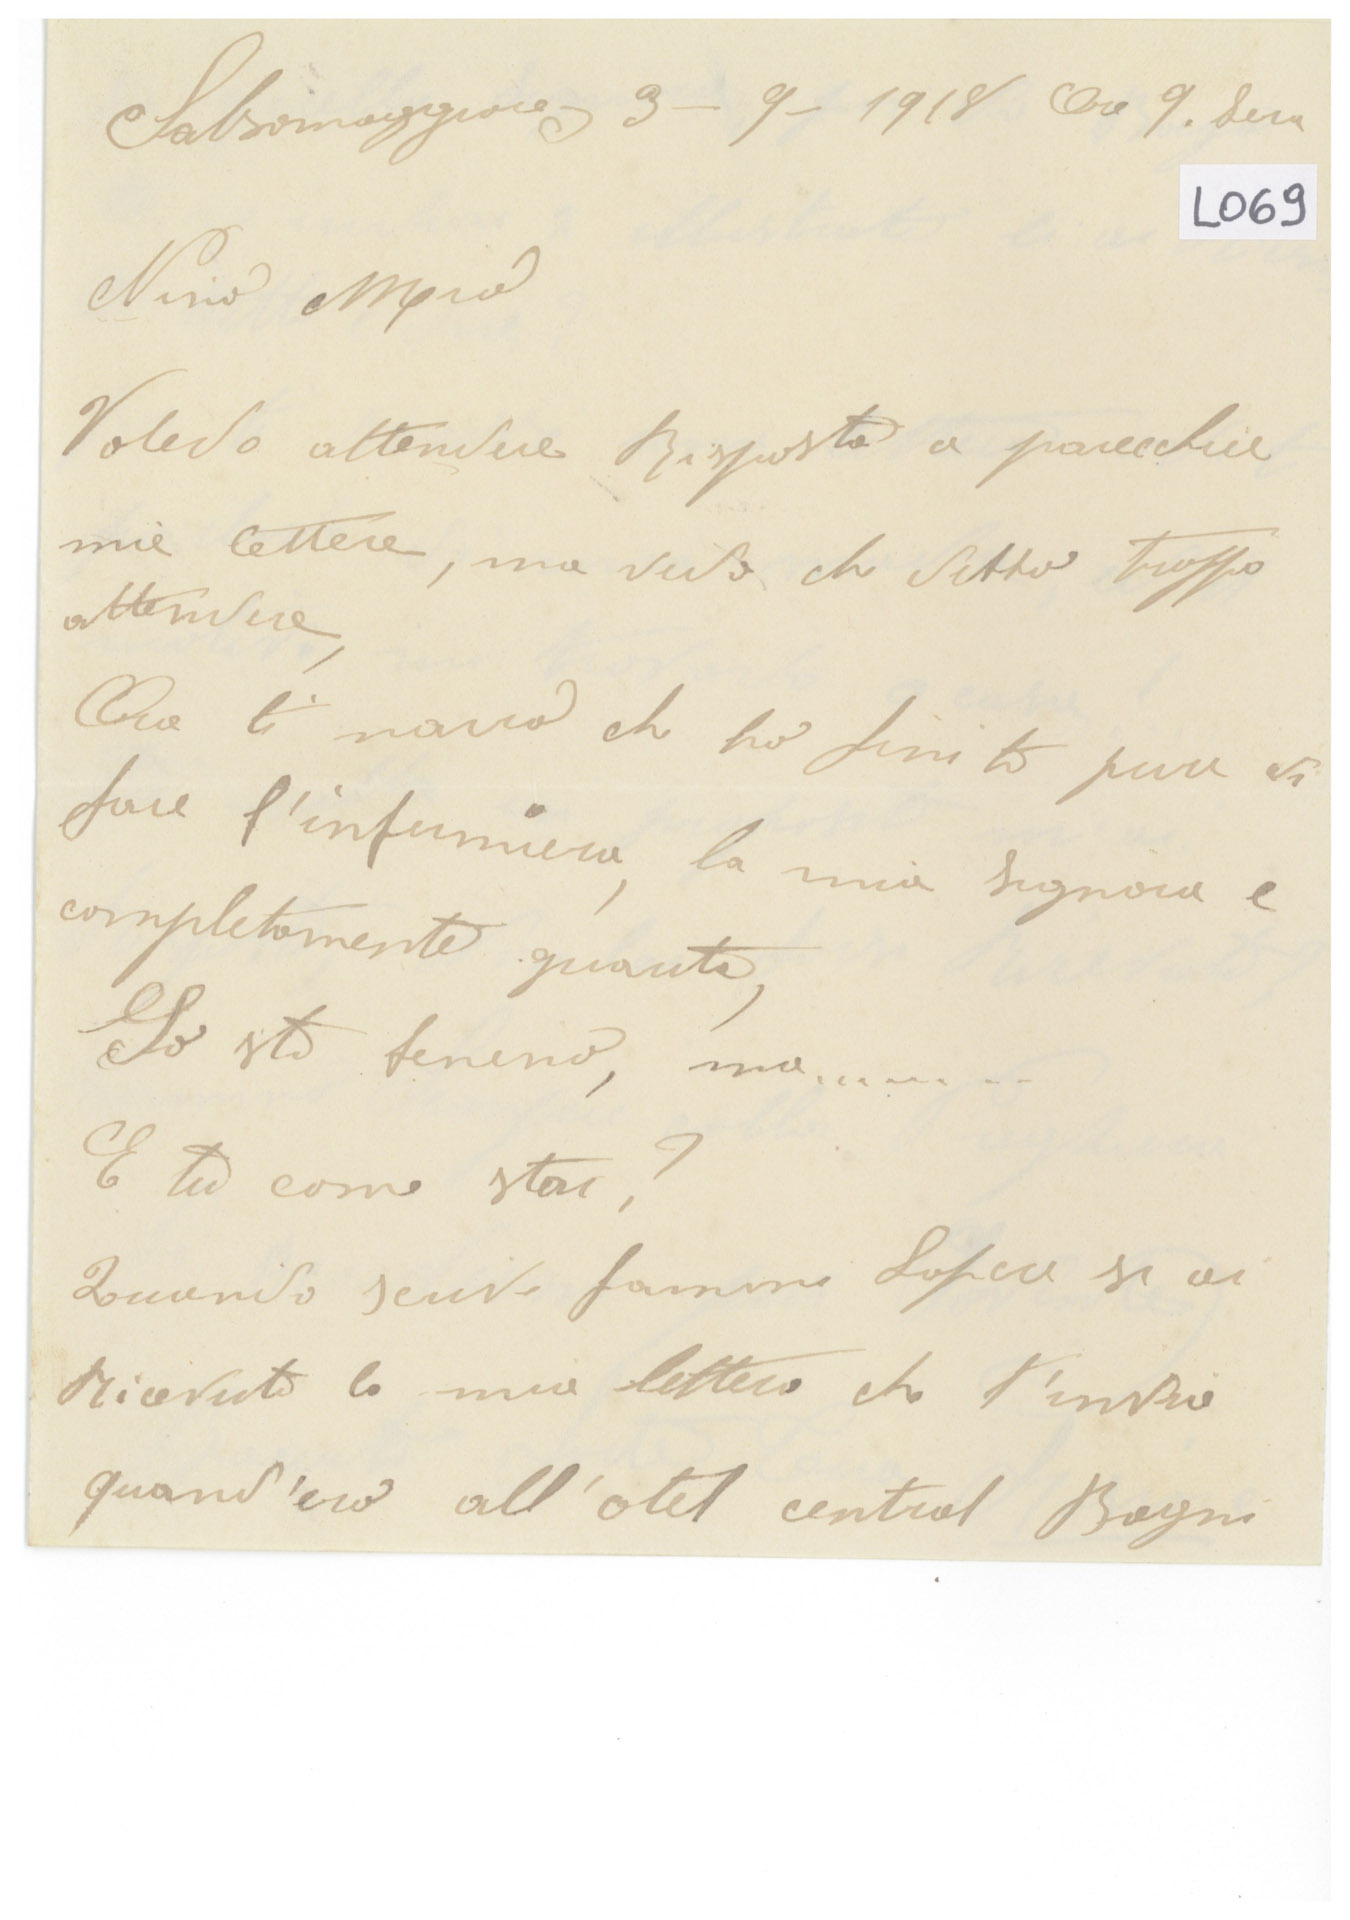 Salsomaggiore 3-9-1918 Ore 9. Sera
L069
Nino Mio
Volevo attendere Risposta a parecchie
mie lettere, ma vedo che devo troppo
attendere,
Ora ti narrò che ho finito pure di
fare l'infermiera, la mia signora e
completamente guarita,
Io sto benino, ma.........
E tu come stai,?
Quando scrivi fammi Sapere se ai
Ricevuto la mia lettera che t'inviai
quand'ero all'otel central Bagni